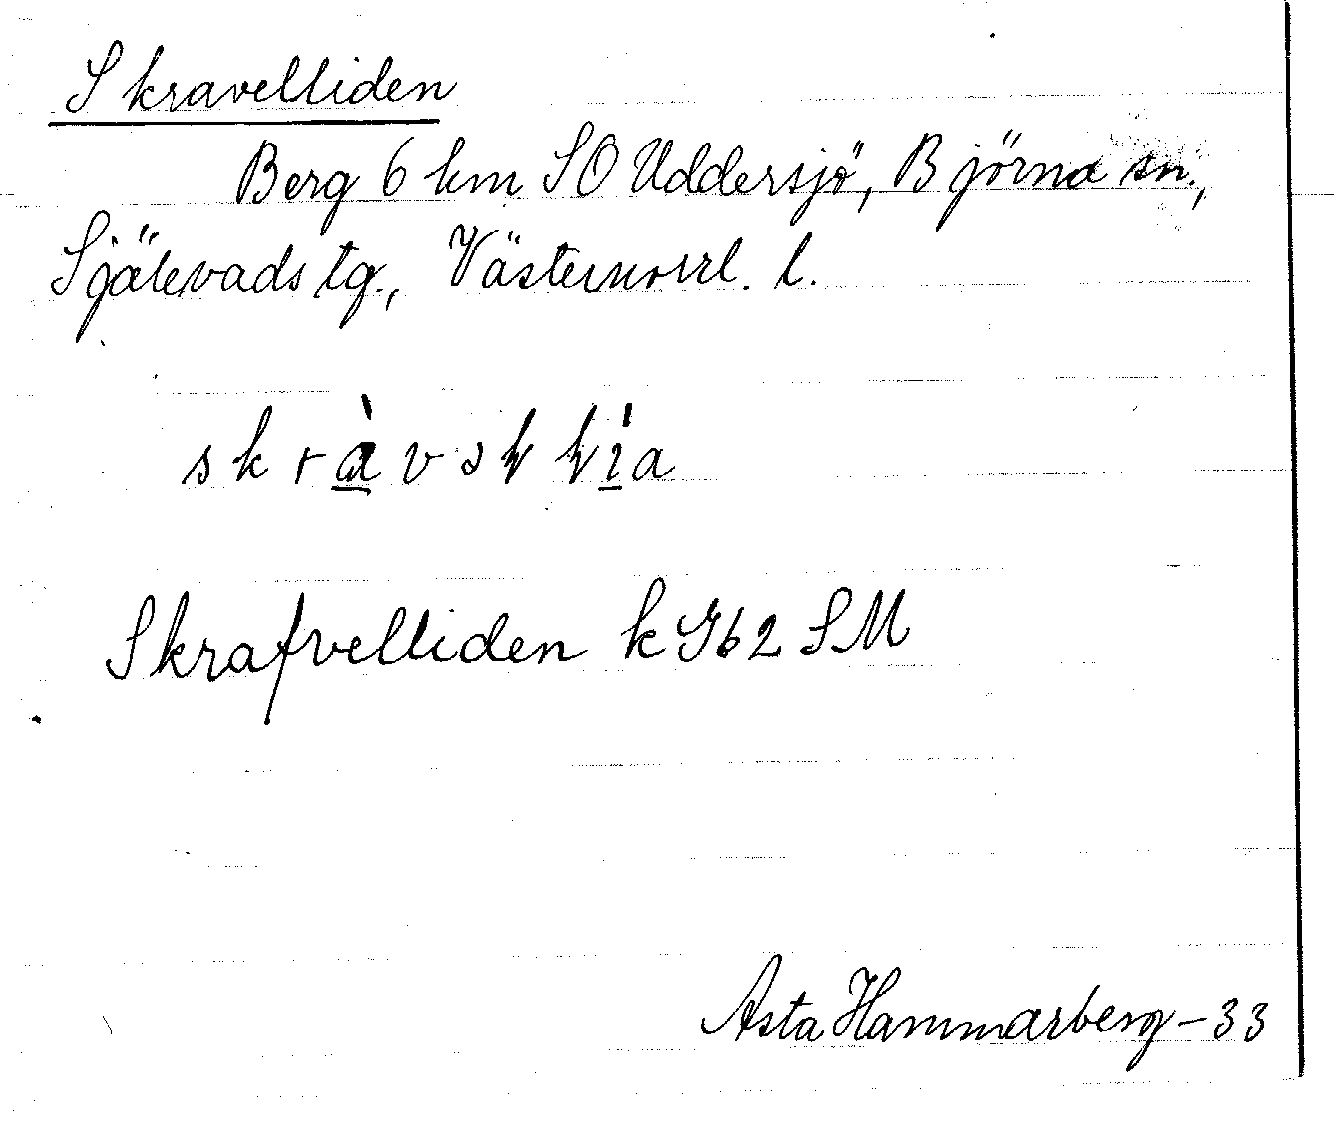 Skravelliden
Berg 6 km SO Uddersjö, Björna sn.,
Själevads tg., Västernorrl. l.
Skrafvelliden k Gb2 SM
Asta Hammarberg – 33